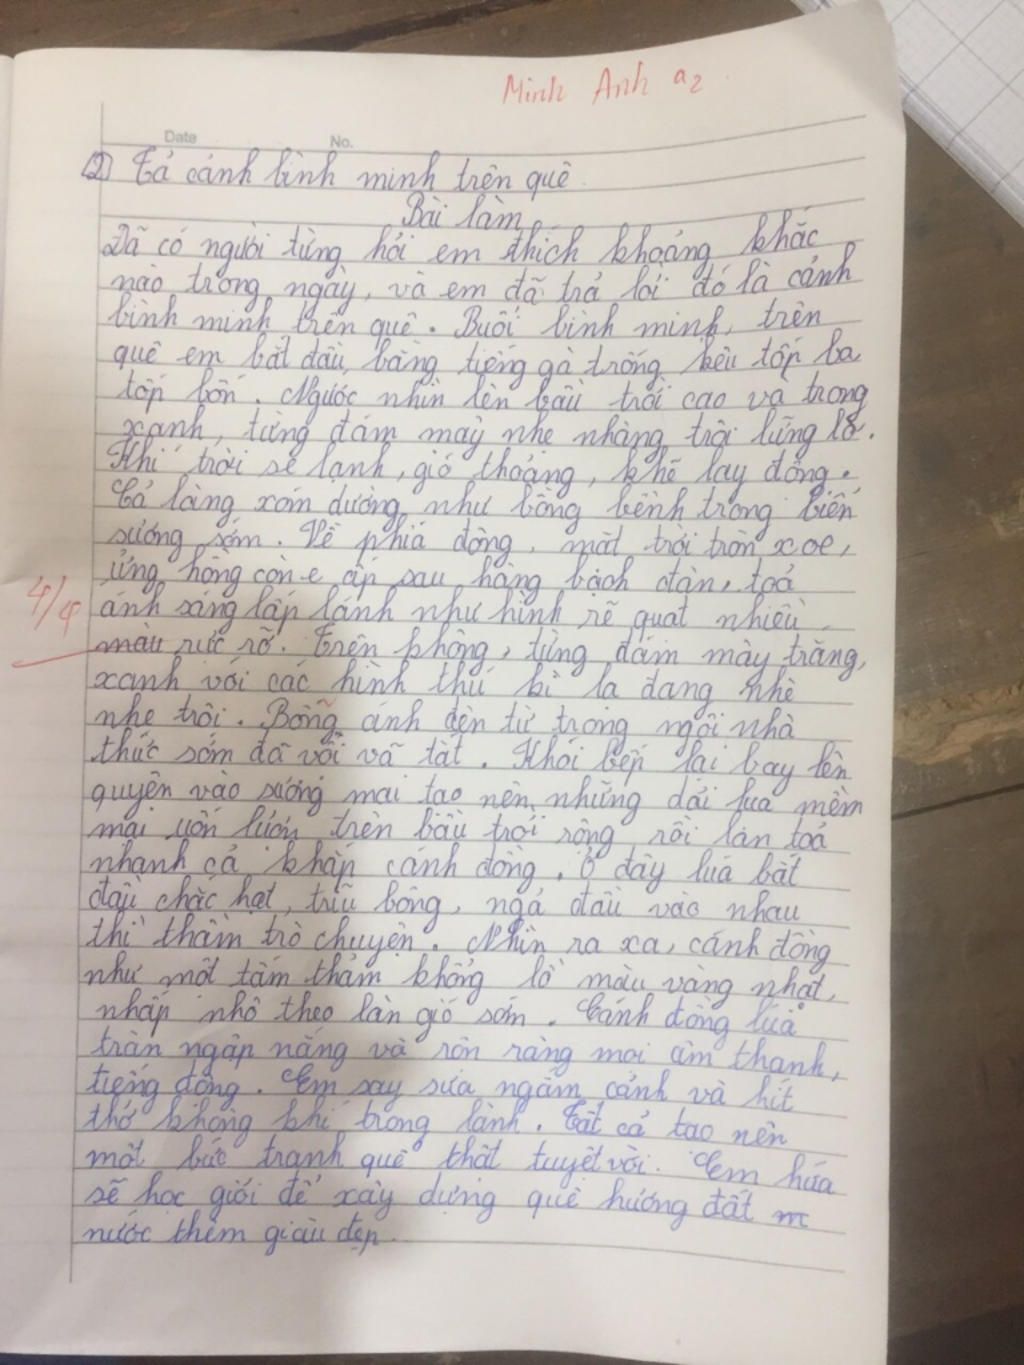 Minh Anh a2
Date No.
(2) Tả cảnh bình minh trên quê.
Bài làm
Đã có người từng hỏi em thích khoảng khắc
nào trong ngày, và em đã trả lời đó là cảnh
bình minh trên quê. Buổi bình minh, trên
quê em bắt đầu, bằng tiếng gà trống kêu tốp ba
tốp bốn. Ngước nhìn lên bầu trời cao và trong
xanh, từng đám mây nhẹ nhàng trôi lững lờ.
Khí trời se lạnh, gió thoảng, khẽ lay động.
Cả làng xóm dường như bồng bềnh trong biển
sương sớm. Về phía đông, mặt trời tròn xoe,
ửng hồng còn e ấp sau hàng bạch đàn, toả
ánh sáng lấp lánh như hình rẽ quạt nhiều
4/4
màu rực rỡ. Trên không, từng đám mây trắng,
xanh với các hình thú kì lạ đang nhè
nhẹ trôi. Bỗng ánh đèn từ trong ngôi nhà
thức sớm đã vội vã tắt. Khói bếp lại bay lên
quyện vào sương mai tạo nên những dải lụa mềm
mại uốn lượn trên bầu trời rộng rồi lan toả
nhanh cả khắp cánh đồng. Ở đây lúa bắt
đầu chắc hạt, trĩu bông, ngả đầu vào nhau
thì thầm trò chuyện. Nhìn ra xa, cánh đồng
như một tấm thảm khổng lồ màu vàng nhạt,
nhấp nhô theo làn gió sớm. Cánh đồng lúa
tràn ngập nắng và rộn ràng mọi âm thanh,
tiếng động. Em say sưa ngắm cảnh và hít
thở không khí trong lành. Tất cả tạo nên
một bức tranh quê thật tuyệt vời. Em hứa
sẽ học giỏi để xây dựng quê hương đất
nước thêm giàu đẹp.